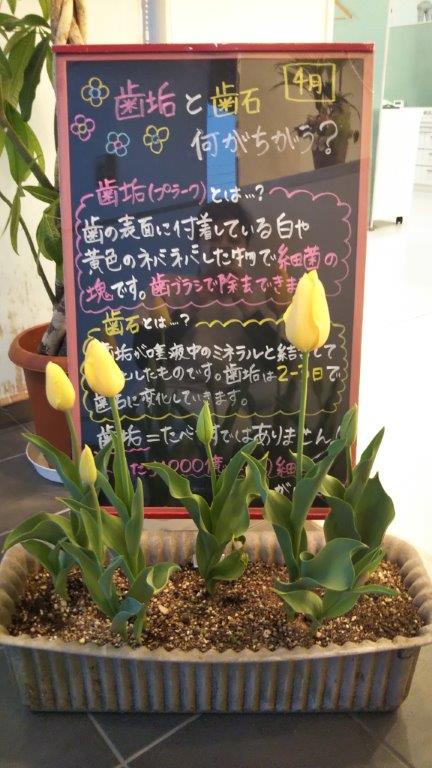 4月
歯垢と歯石
何がちがう?
歯垢(プラーク)とは…?
歯の表面に付着している白や
黄色のネバネバした物で細菌の
塊です。歯ブラシで除去できま
歯石とは…?
歯垢が唾液中のミネラルと結
したものです。歯垢は2-3日で
歯石に変化していきます。
歯垢=たべ ではありません
000億 細
が